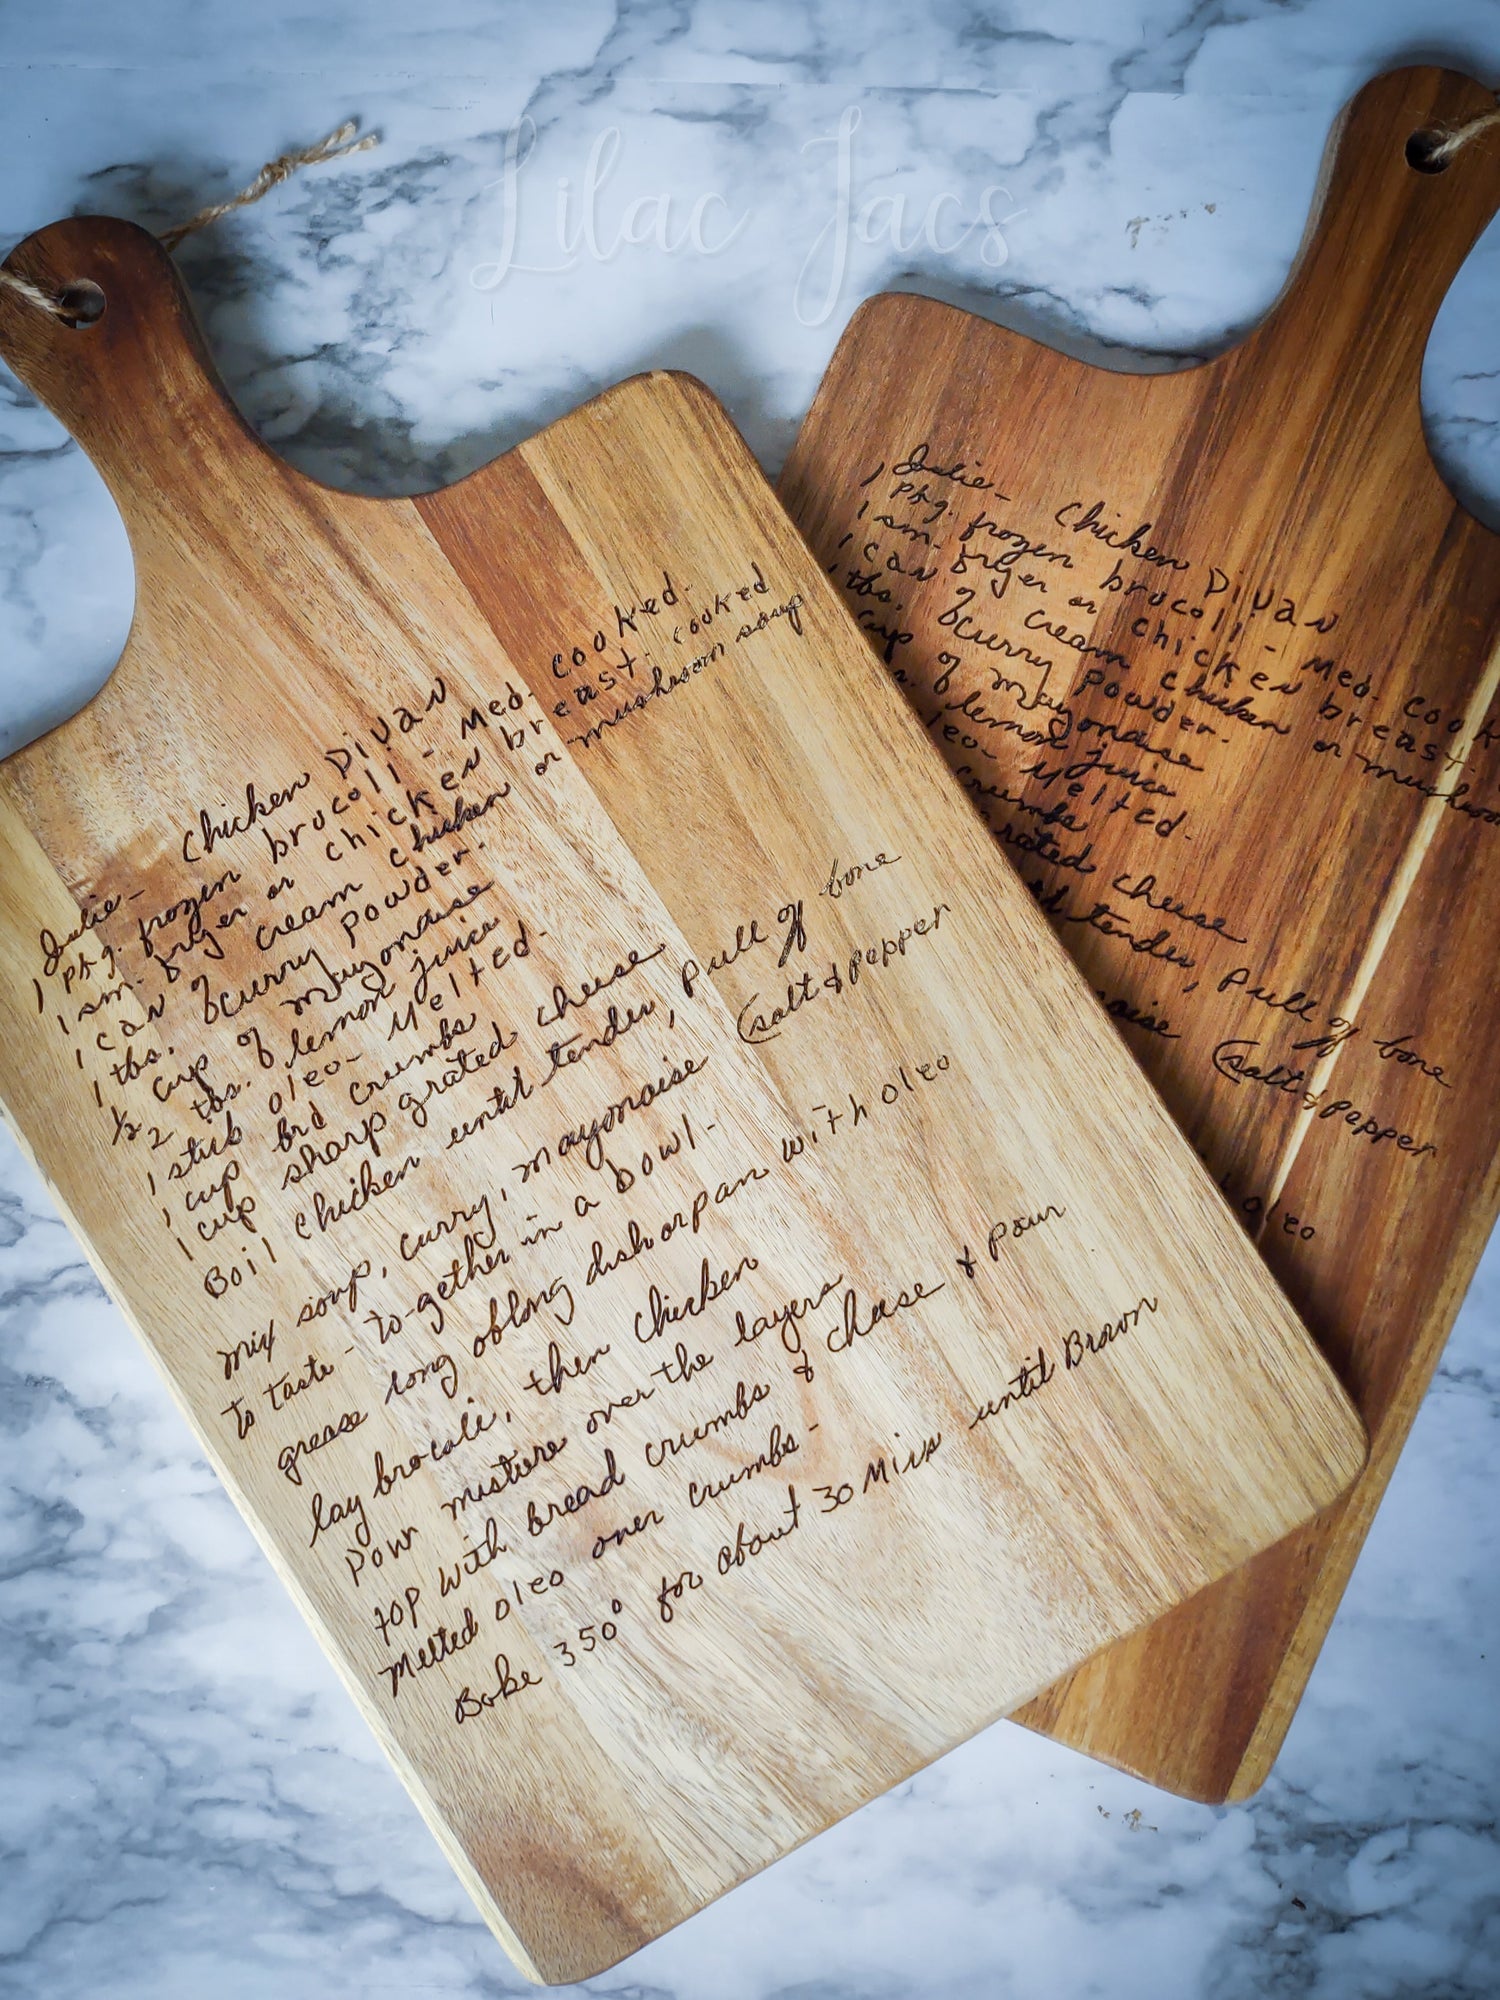 Lilac Jacs
Julie- Chicken Divan
1 pkg. frozen brocoli - Med. cooked.
1 sm. fryer or chicken breast. cooked
1 can of cream chicken or mushroom soup
1 tbs. of curry powder.
1/2 cup of mayonaise
2 tbs. of lemon juice
1 stick oleo- Melted.
1 cup brd crumbs
1 cup sharp grated cheese
Boil chicken until tender, pull of bone
Mix soup, curry, mayonaise (salt & pepper
to taste - to-gether in a bowl-
grease long oblong dish or pan with oleo
lay brocoli, then chicken
Pour mixture over the layers
top with bread crumbs & cheese & pour
Melted oleo over crumbs-
Bake 350° for about 30 Mins until Brown
Julie- Chicken Divan
1 pkg. frozen brocoli - Med. cook
1 sm. fryer or chicken breast.
1 can of cream chicken or mushroo
1 tbs. of curry powder.
cup of mayonaise
s. of lemon juice
leo- Melted.
crumbs
rated cheese
tender, pull of bone
naise (salt & pepper
oleo